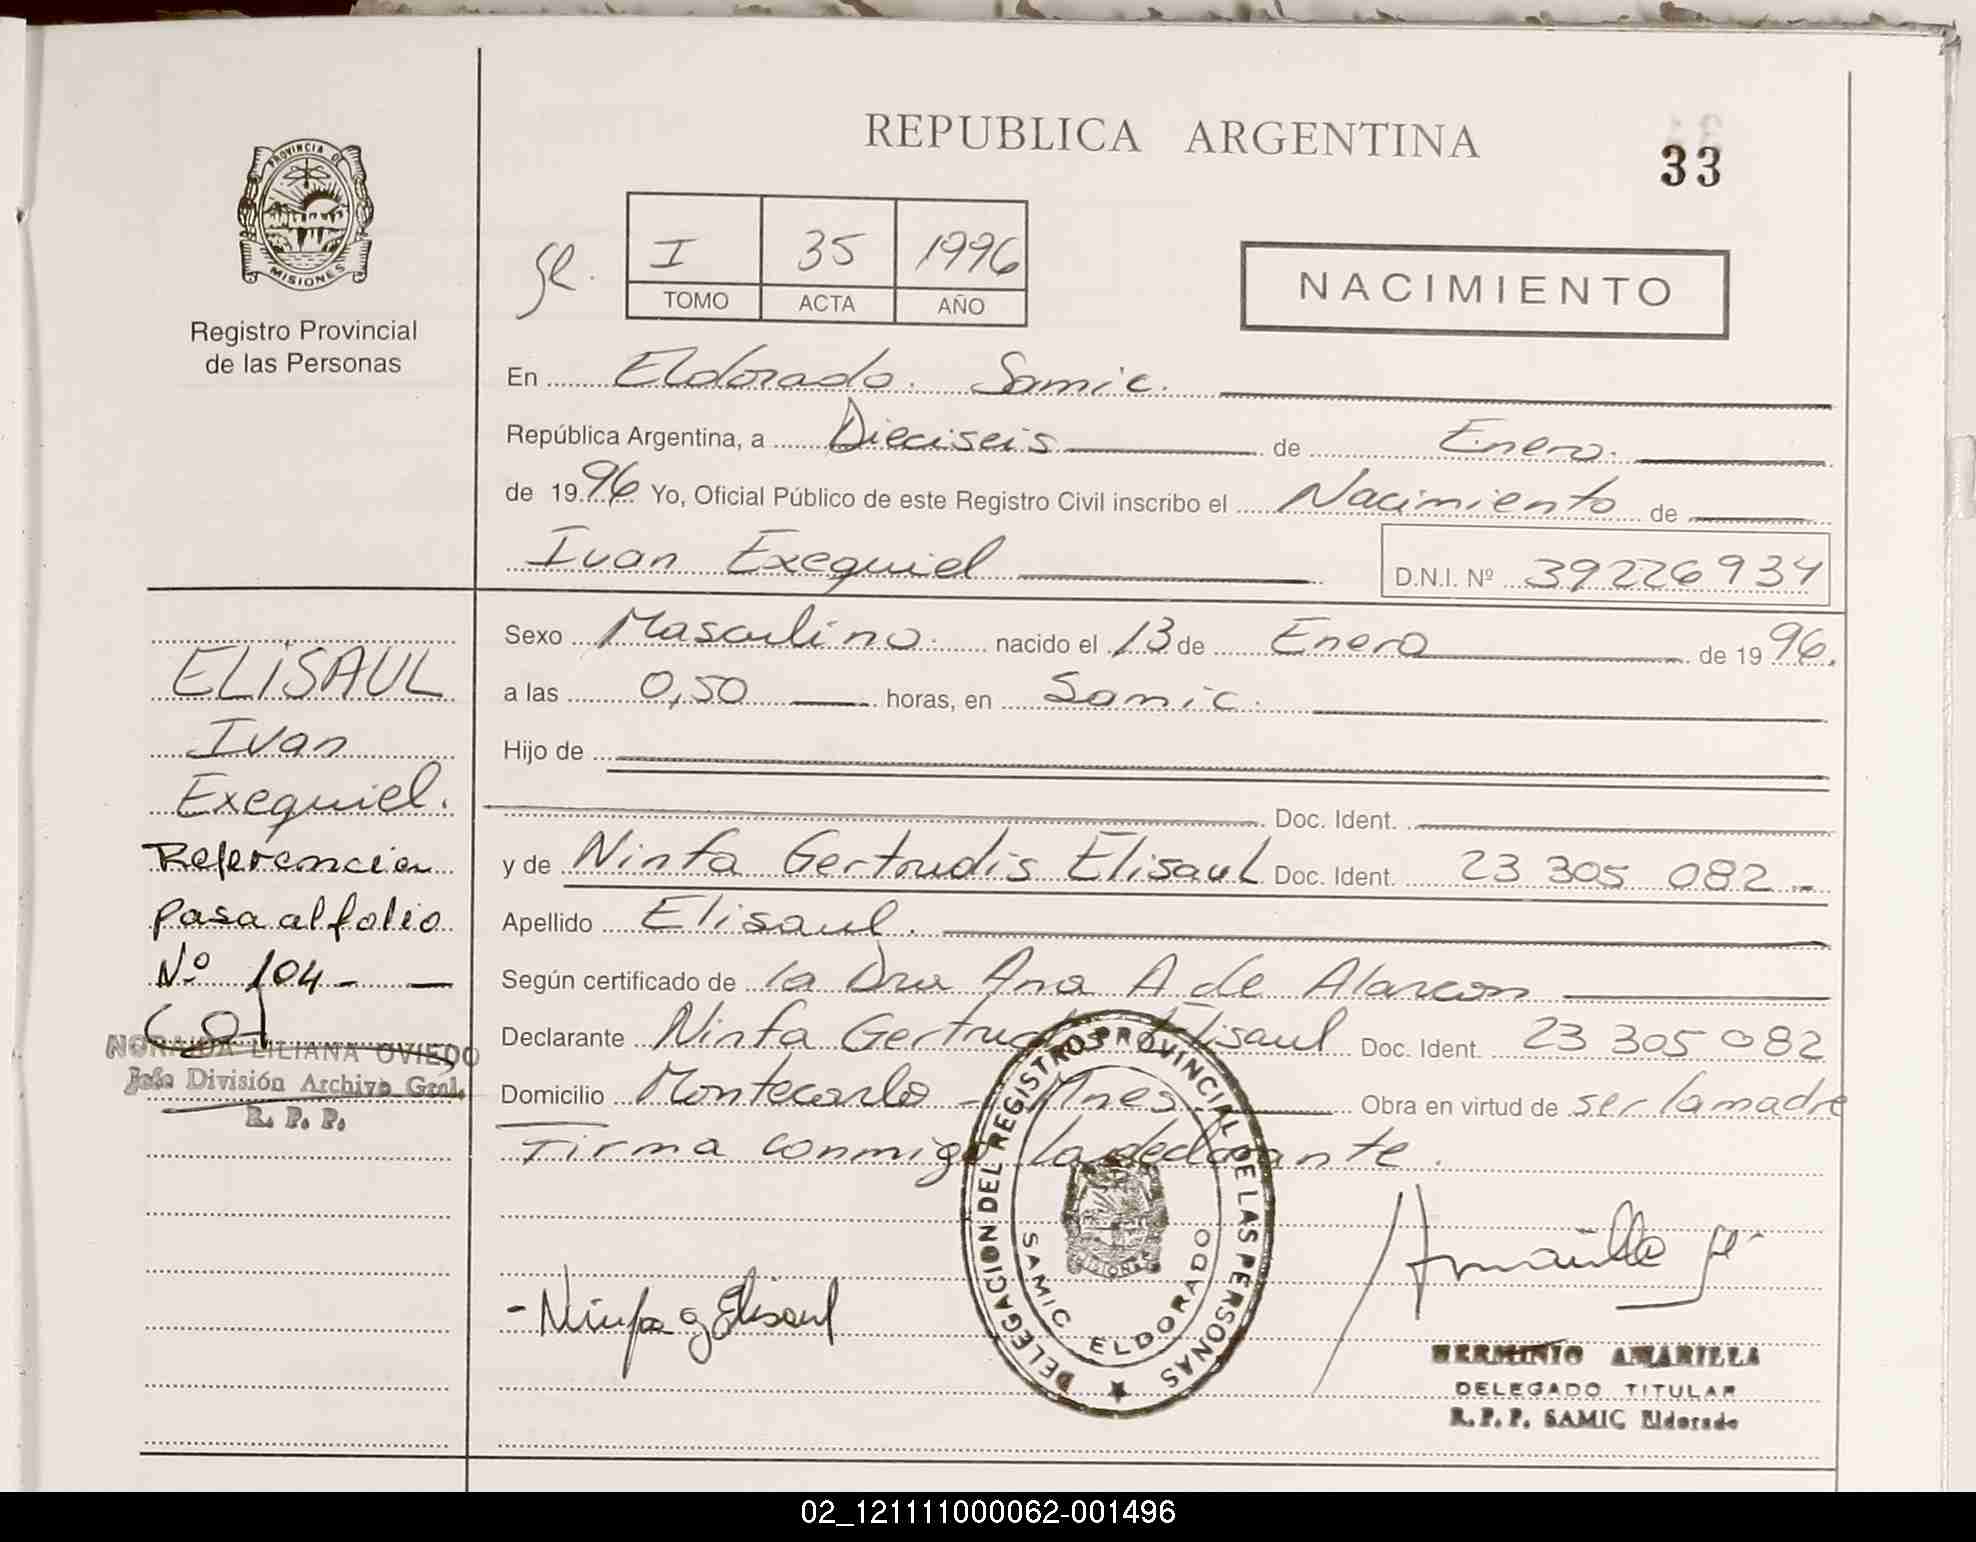 REPUBLICA ARGENTINA
33
PROVINCIA DE
MISIONES
Registro Provincial
de las Personas
I 35 1996
TOMO ACTA AÑO
NACIMIENTO
En Eldorado. Samic.
República Argentina, a Dieciseis de Enero.
de 1996 Yo, Oficial Público de este Registro Civil inscribo el Nacimiento de
Ivan Exequiel D.N.I. Nº 39226934
Sexo Masculino. nacido el 13 de Enero de 1996.
a las 0,50 horas, en Samic.
Hijo de
Doc. Ident.
y de Ninfa Gertrudis Elisaul Doc. Ident. 23 305 082
Apellido Elisaul.
Según certificado de la Dra Ana A de Alarcon
Declarante Ninfa Gertrudis Elisaul Doc. Ident. 23 305 082
Domicilio Montecarlo - Mnes. Obra en virtud de ser la madre
Firma conmigo la declarante.
ELISAUL
Ivan
Exequiel.
Referencia
pasa al folio
Nº 104 -
NORAIDA LILIANA OVIEDO
Jefe División Archivo Gral.
R. P. P.
- Ninfa G Elisaul
DELEGACION DEL REGISTRO PROVINCIAL DE LAS PERSONAS
SAMIC ELDORADO
MISIONES
HERMINIO AMARILLA
DELEGADO TITULAR
R. P. P. SAMIC Eldorado
02_121111000062-001496